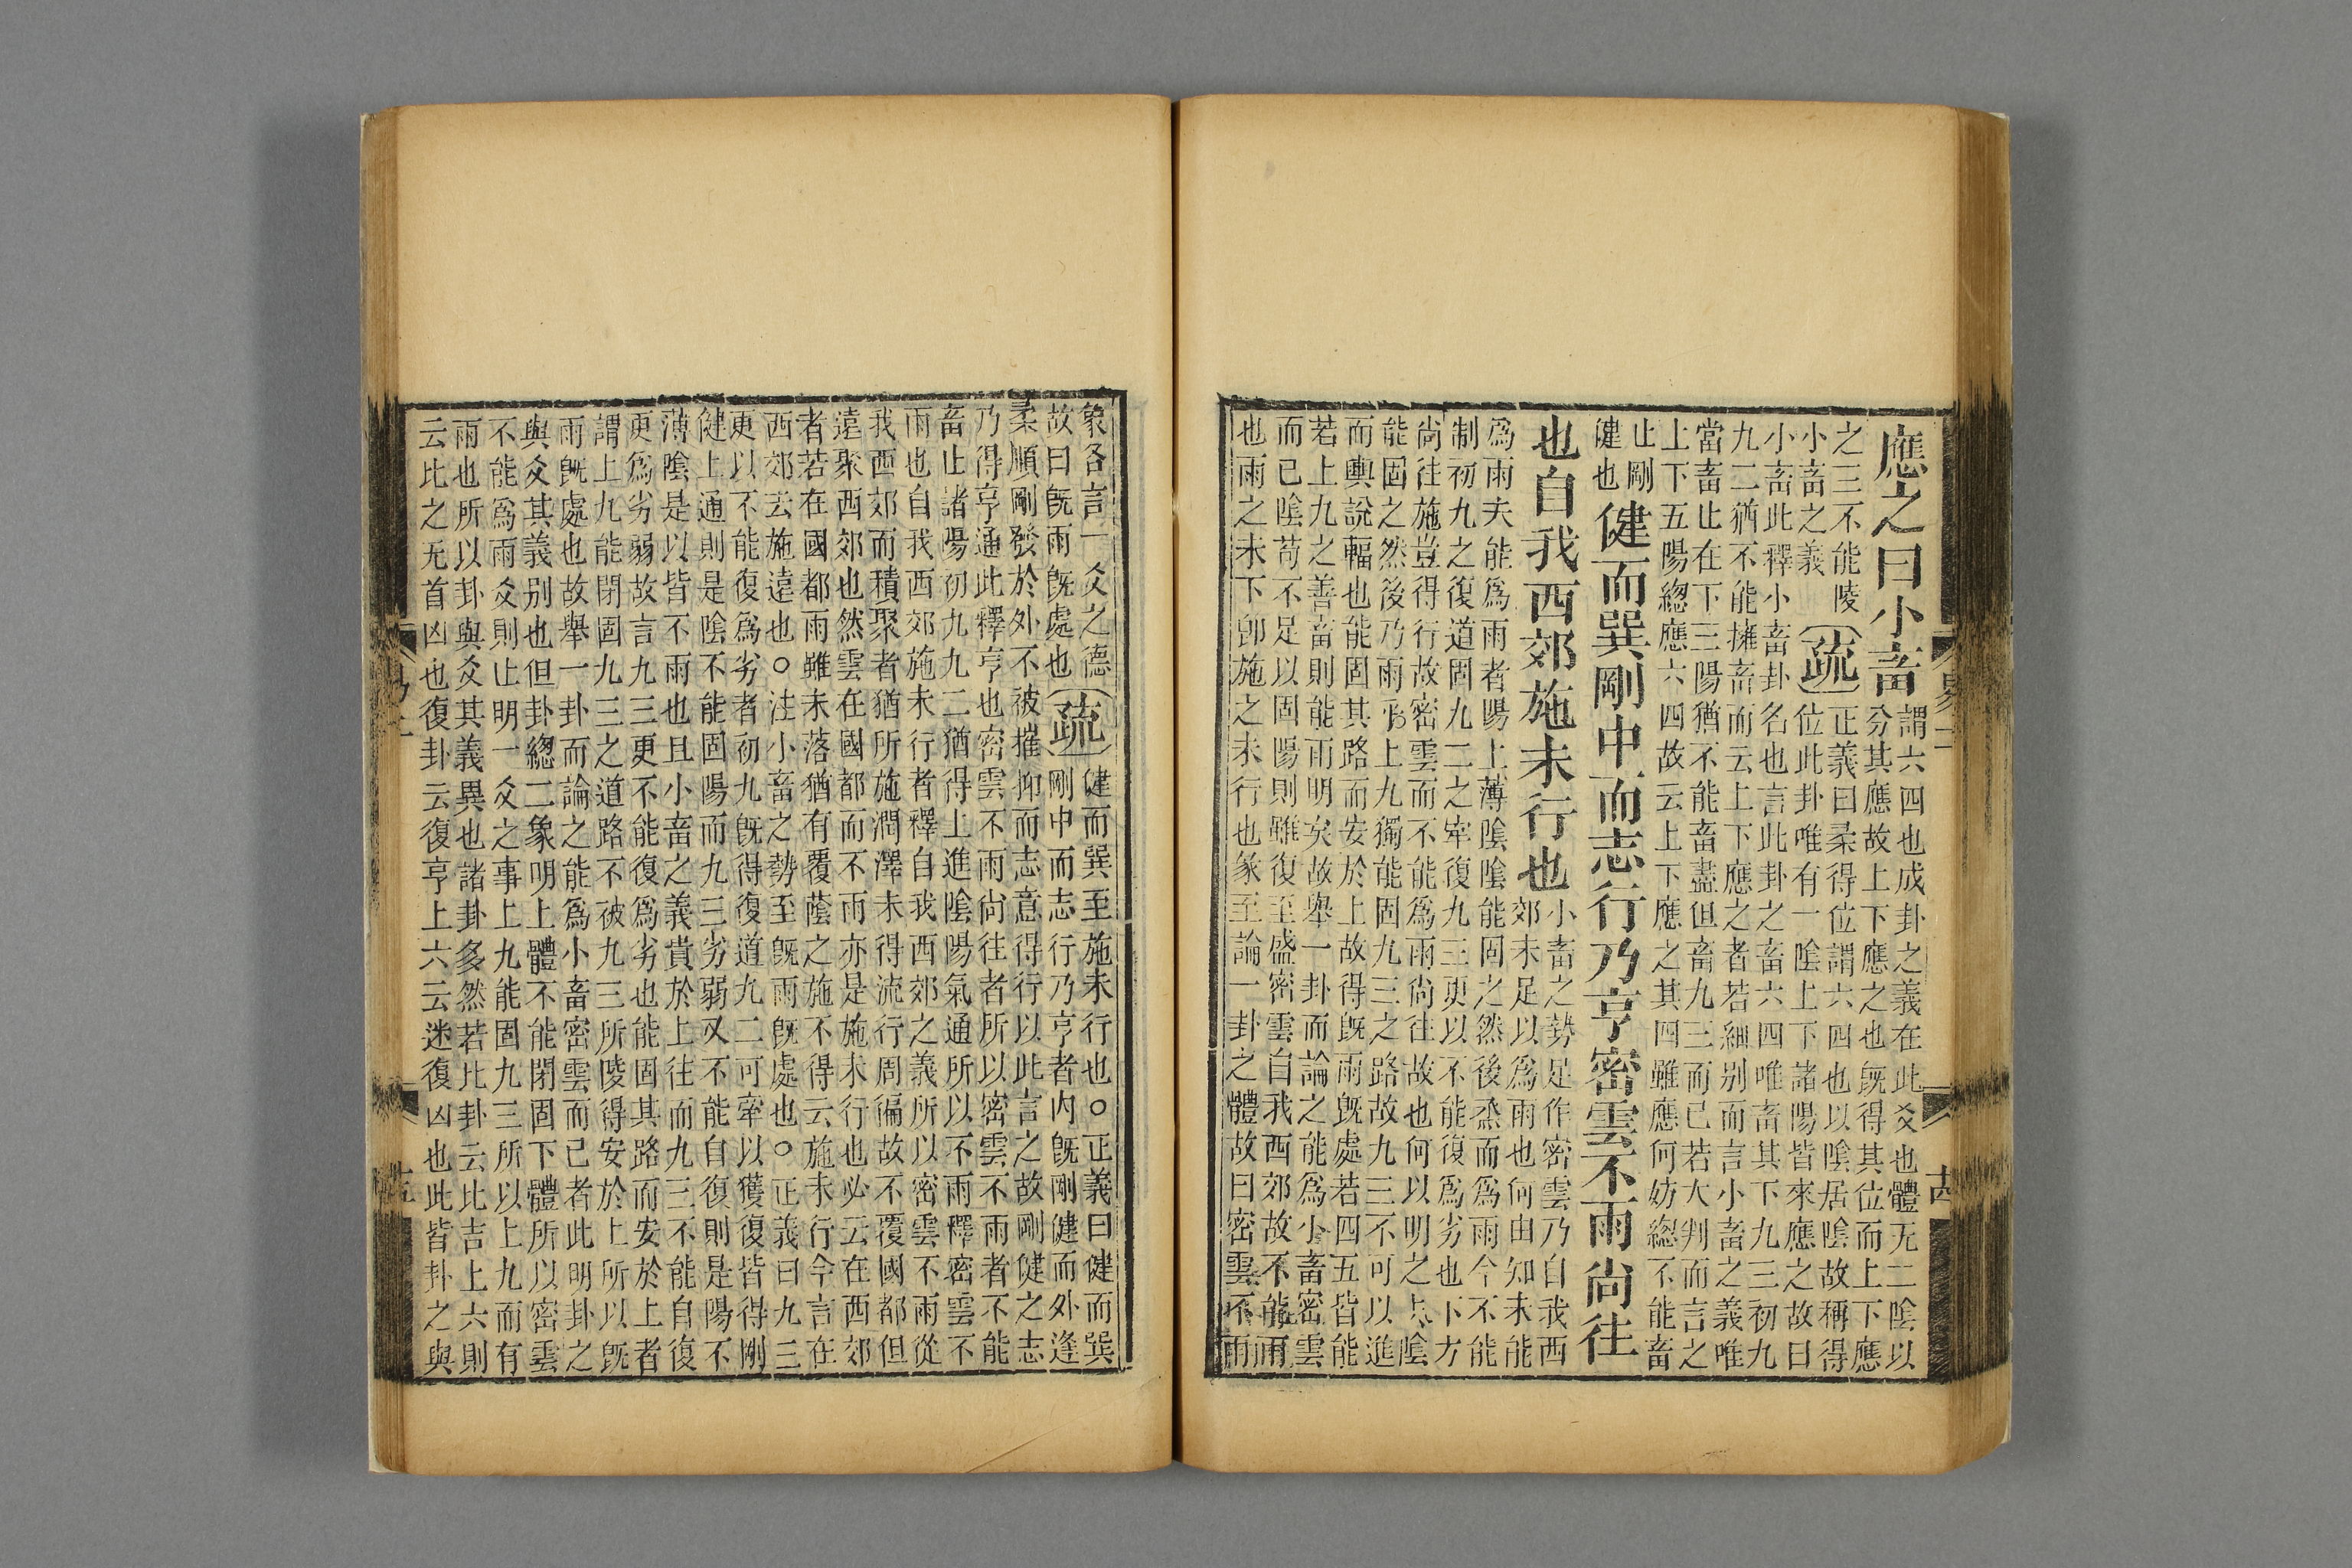 應之曰小畜
謂六四也成卦之義在此爻也體无二陰以
分其應故上下應之也既得其位而上下應
之三不能陵
小畜之義
疏
正義曰柔得位謂六四也以陰居陰故稱得
位此卦唯有一陰上下諸陽皆來應之故曰
小畜此釋小畜卦名也言此卦之畜六四唯畜其下九三初九
九二猶不能擁畜而云上下應之者若細别而言小畜之義唯
當畜止在下三陽猶不能畜盡但畜九三而已若大判而言之
上下五陽緫應六四故云上下應之其四雖應何妨緫不能畜
止剛
健也
健而巽剛中而志行乃亨密雲不雨尚往
也自我西郊施未行也
小畜之勢足作密雲乃自我西
郊未足以爲雨也何由知未能
爲雨夫能爲雨者陽上薄陰陰能固之然後烝而爲雨今不能
制初九之復道固九二之牽復九三更以不能復爲劣也下方
尚往施豈得行故密雲而不能爲雨尚往故也何以明之夫陰
能固之然後乃雨乎上九獨能固九三之路故九三不可以進
而輿說輻也能固其路而安於上故得既雨既處若四五皆能
若上九之善畜則能雨明矣故舉一卦而論之能爲小畜密雲
而已陰苟不足以固陽則雖復至盛密雲自我西郊故不能雨
也雨之未下卽施之未行也彖至論一卦之體故曰密雲不雨
象各言一爻之德
故曰既雨既處也
疏
健而巽至施未行也○正義曰健而巽
剛中而志行乃亨者内既剛健而外逢
柔順剛發於外不被摧抑而志意得行以此言之故剛健之志
乃得亨通此釋亨也密雲不雨尚往者所以密雲不雨者不能
畜止諸陽初九九二猶得上進陰陽氣通所以不雨釋密雲不
雨也自我西郊施未行者釋自我西郊之義所以密雲不雨從
我西郊而積聚者猶所施潤澤未得流行周徧故不覆國都但
遠聚西郊也然雲在國都而不雨亦是施未行也必云在西郊
者若在國都雨雖未落猶有覆蔭之施不得云施未行今言在
西郊去施遠也○注小畜之勢至既雨既處也○正義曰九三
更以不能復爲劣者初九既得復道九二可牽以獲復皆得剛
健上通則是陰不能固陽而九三劣弱又不能自復則是陽不
薄陰是以皆不雨也且小畜之義貴於上往而九三不能自復
更爲劣弱故言九三更不能復爲劣也能固其路而安於上者
謂上九能閉固九三之道路不被九三所陵得安於上所以既
雨既處也故舉一卦而論之能爲小畜密雲而已者此明卦之
與爻其義别也但卦緫二象明上體不能閉固下體所以密雲
不能爲雨爻則止明一爻之事上九能固九三所以上九而有
雨也所以卦與爻其義異也諸卦多然若比卦云比吉上六則
云比之无首凶也復卦云復亨上六云迷復凶也此皆卦之與